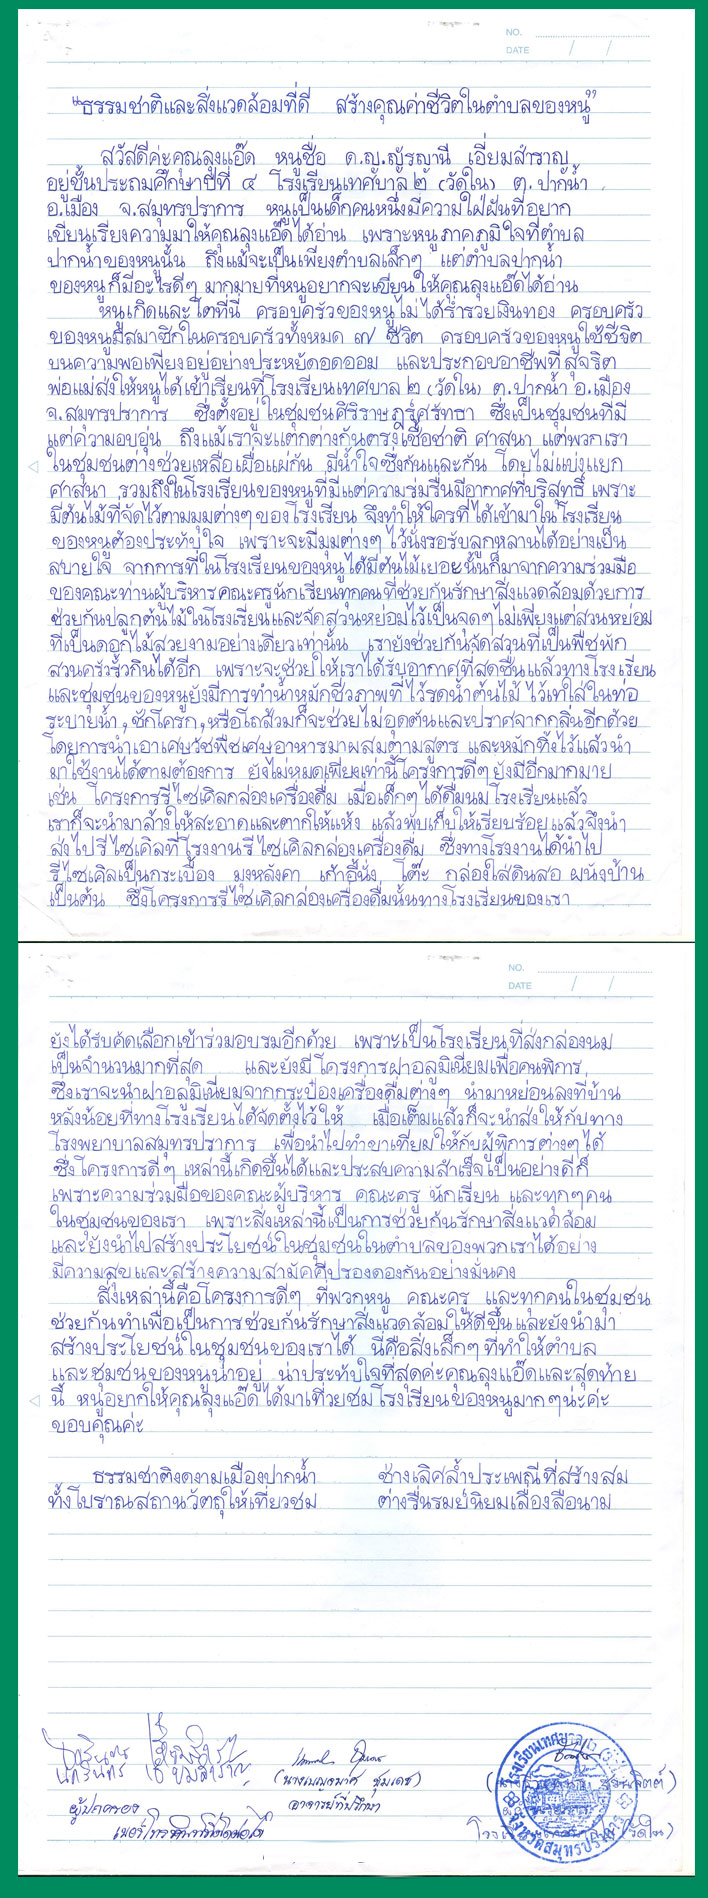 NO.
DATE / /
"ธรรมชาติและสิ่งแวดล้อมที่ดี สร้างคุณค่าชีวิตในตำบลของหนู"
สวัสดีค่ะคุณลุงแอ๊ด หนูชื่อ ด.ญ. เอี่ยมสำราญ
อยู่ชั้นประถมศึกษาปีที่ ๔ โรงเรียนเทศบาล ๒ (วัดใน) ต.ปากน้ำ
อ.เมือง จ.สมุทรปราการ หนูเป็นเด็กคนหนึ่งมีความใฝ่ฝันที่อยาก
เขียนเรียงความมาให้คุณลุงแอ๊ดได้อ่าน เพราะหนูภาคภูมิใจที่ตำบล
ปากน้ำของหนูนั้น ถึงแม้จะเป็นเพียงตำบลเล็กๆ แต่ตำบลปากน้ำ
ของหนูก็มีอะไรดีๆ มากมายที่หนูอยากจะเขียนให้คุณลุงแอ๊ดได้อ่าน
หนูเกิดและโตที่นี่ ครอบครัวของหนูไม่ได้ร่ำรวยเงินทอง ครอบครัว
ของหนูมีสมาชิกในครอบครัวทั้งหมด ๗ ชีวิต ครอบครัวของหนูใช้ชีวิต
บนความพอเพียงอยู่อย่างประหยัดอดออม และประกอบอาชีพที่สุจริต
พ่อแม่ส่งให้หนูได้เข้าเรียนที่โรงเรียนเทศบาล ๒ (วัดใน) ต.ปากน้ำ อ.เมือง
จ.สมุทรปราการ ซึ่งตั้งอยู่ในชุมชนศิริราษฎร์ศรัทธา ซึ่งเป็นชุมชนที่มี
แต่ความอบอุ่น ถึงแม้เราจะแตกต่างกันตรงเชื้อชาติ ศาสนา แต่พวกเรา
ในชุมชนต่างช่วยเหลือเผื่อแผ่กัน มีน้ำใจซึ่งกันและกัน โดยไม่แบ่งแยก
ศาสนา รวมถึงในโรงเรียนของหนูที่มีแต่ความร่มรื่นมีอากาศที่บริสุทธิ์ เพราะ
มีต้นไม้ที่จัดไว้ตามมุมต่างๆ ของโรงเรียน จึงทำให้ใครที่ได้เข้ามาในโรงเรียน
ของหนูต้องประทับใจ เพราะจะมีมุมต่างๆ ไว้นั่งรอรับลูกหลานได้อย่างเย็น
สบายใจ จากการที่ในโรงเรียนของหนูได้มีต้นไม้เยอะนั้นก็มาจากความร่วมมือ
ของคณะท่านผู้บริหารคณะครูนักเรียนทุกคนที่ช่วยกันรักษาสิ่งแวดล้อมด้วยการ
ช่วยกันปลูกต้นไม้ในโรงเรียนและจัดสวนหย่อมไว้เป็นจุดๆไม่เพียงแต่สวนหย่อม
ที่เป็นดอกไม้สวยงามอย่างเดียวเท่านั้น เรายังช่วยกันจัดสวนที่เป็นพืชผัก
สวนครัวรั้วกินได้อีก เพราะจะช่วยให้เราได้รับอากาศที่สดชื่นแล้วทางโรงเรียน
และชุมชนของหนูยังมีการทำน้ำหมักชีวภาพที่ไว้รดน้ำต้นไม้ ไว้เทใส่ในท่อ
ระบายน้ำ, ชักโครก, หรือโถส้วมก็จะช่วยไม่อุดตันและปราศจากกลิ่นอีกด้วย
โดยการนำเอาเศษวัชพืชเศษอาหารมาผสมตามสูตร และหมักทิ้งไว้แล้วนำ
มาใช้งานได้ตามต้องการ ยังไม่หมดเพียงเท่านี้โครงการดีๆ ยังมีอีกมากมาย
เช่น โครงการรีไซเคิลกล่องเครื่องดื่ม เมื่อเด็กๆ ได้ดื่มนมโรงเรียนแล้ว
เราก็จะนำมาล้างให้สะอาดและตากให้แห้ง แล้วพับเก็บให้เรียบร้อยแล้วจึงนำ
ส่งไปรีไซเคิลที่โรงงานรีไซเคิลกล่องเครื่องดื่ม ซึ่งทางโรงงานได้นำไป
รีไซเคิลเป็นกระเบื้อง มุงหลังคา เก้าอี้นั่ง โต๊ะ กล่องใส่ดินสอ ผนังบ้าน
เป็นต้น ซึ่งโครงการรีไซเคิลกล่องเครื่องดื่มนั้นทางโรงเรียนของเรา
NO.
DATE / /
ยังได้รับคัดเลือกเข้าร่วมอบรมอีกด้วย เพราะเป็นโรงเรียนที่ส่งกล่องนม
เป็นจำนวนมากที่สุด และยังมีโครงการฝาอลูมิเนียมเพื่อคนพิการ
ซึ่งเราจะนำฝาอลูมิเนียมจากกระป๋องเครื่องดื่มต่างๆ นำมาหย่อนลงที่บ้าน
หลังน้อยที่ทางโรงเรียนได้จัดตั้งไว้ให้ เมื่อเต็มแล้วก็จะนำส่งให้กับทาง
โรงพยาบาลสมุทรปราการ เพื่อนำไปทำขาเทียมให้กับผู้พิการต่างๆ ได้
ซึ่งโครงการดีๆ เหล่านี้เกิดขึ้นได้และประสบความสำเร็จเป็นอย่างดีก็
เพราะความร่วมมือของคณะผู้บริหาร คณะครู นักเรียน และทุกๆคน
ในชุมชนของเรา เพราะสิ่งเหล่านี้เป็นการช่วยกันรักษาสิ่งแวดล้อม
และยังนำไปสร้างประโยชน์ในชุมชนในตำบลของพวกเราได้อย่าง
มีความสุขและสร้างความสามัคคีปรองดองกันอย่างมั่นคง
สิ่งเหล่านี้คือโครงการดีๆ ที่พวกหนู คณะครู และทุกคนในชุมชน
ช่วยกันทำเพื่อเป็นการช่วยกันรักษาสิ่งแวดล้อมให้ดีขึ้นและยังนำมา
สร้างประโยชน์ในชุมชนของเราได้ นี่คือสิ่งเล็กๆ ที่ทำให้ตำบล
และชุมชนของหนูน่าอยู่ น่าประทับใจที่สุดค่ะคุณลุงแอ๊ดและสุดท้าย
นี้ หนูอยากให้คุณลุงแอ๊ดได้มาเที่ยวชมโรงเรียนของหนูมากๆนะค่ะ
ขอบคุณค่ะ
ธรรมชาติงดงามเมืองปากน้ำ ช่างเลิศล้ำประเพณีที่สร้างสม
ทั้งโบราณสถานวัตถุให้เที่ยวชม ต่างรื่นรมย์นิยมเลื่องลือนาม
เอี่ยมสำราญ
ผู้ปกครอง
อาจารย์ที่ปรึกษา
(วัดใน)
จังหวัดสมุทรปราการ